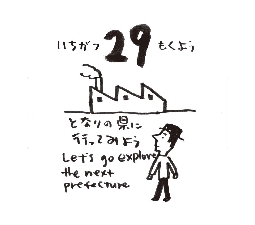 いちがつ 29 もくよう
となりの県に
行ってみよう
Let's go explore
the next
prefecture